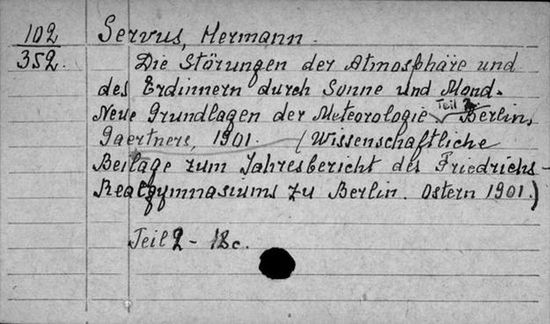 102 Servus, Hermann.
352. Die Störungen der Atmosphäre und
des Erdinnern durch Sonne und Mond.
Teil 2.
Neue Grundlagen der Meteorologie Berlin,
Gaertners, 1901. (Wissenschaftliche
Beilage zum Jahresbericht des Friedrichs-
Realgymnasiums zu Berlin. Ostern 1901.)
Teil 2 - 18c.